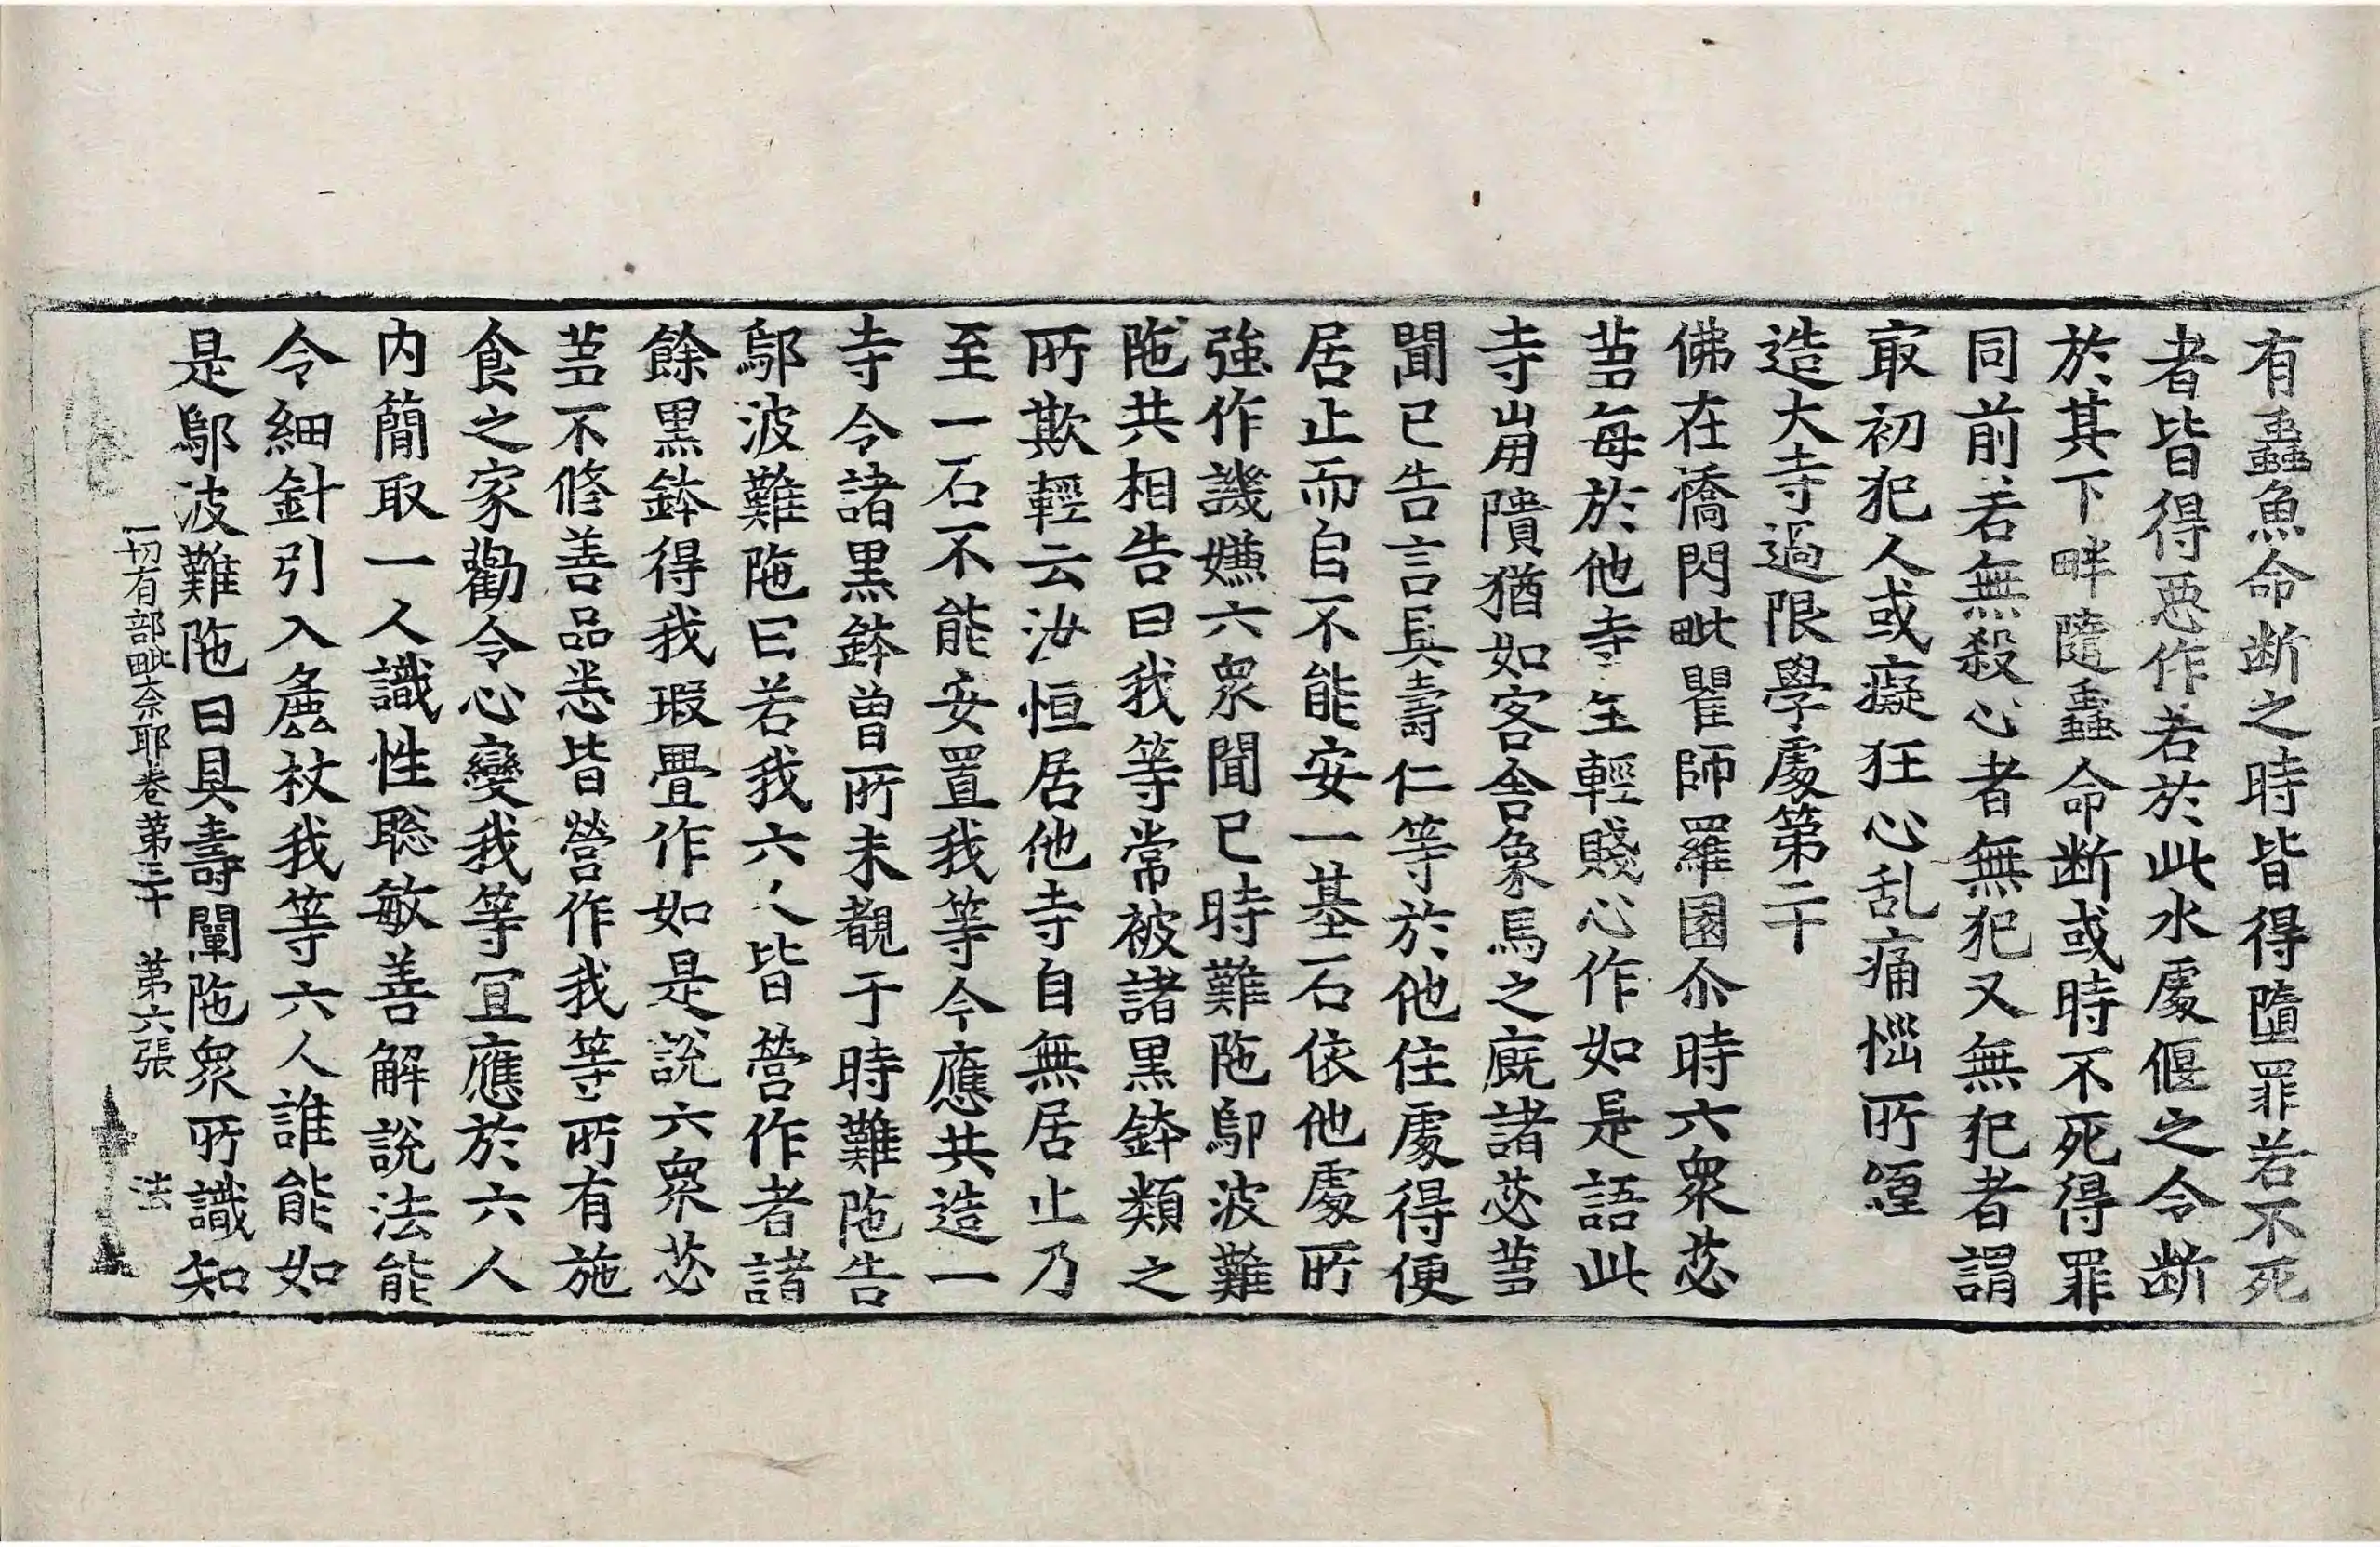 有蟲魚命断之時皆得墮罪若不死
者皆得惡作若於此水處偃之令断
於其下畔隨蟲命断或時不死得罪
同前若無殺心者無犯又無犯者謂
㝡初犯人或癡狂心乱痛惱所纏
造大寺過限學處第二十
佛在憍閃毗瞿師羅園尒時六衆苾
蒭每於他寺生輕賤心作如是語此
寺崩隤猶如客舍象馬之廐諸苾蒭
聞已告言具壽仁等於他住處得便
居止而自不能安一基石依他處所
強作譏嫌六衆聞已時難陁鄔波難
陁共相告曰我等常被諸黑鉢類之
所欺輕云汝恒居他寺自無居止乃
至一石不能安置我等今應共造一
寺令諸黑鉢曾所未覩于時難陁告
鄔波難陁曰若我六人皆營作者諸
餘黑鉢得我瑕舋作如是說六衆苾
蒭不修善品悉皆營作我等所有施
食之家勸令心變我等冝應於六人
内簡取一人識性聡敏善解說法能
令細針引入麁杖我等六人誰能如
是鄔波難陁曰具壽闡陁衆所識知
一切有部毗奈耶卷第三十　第六張　法